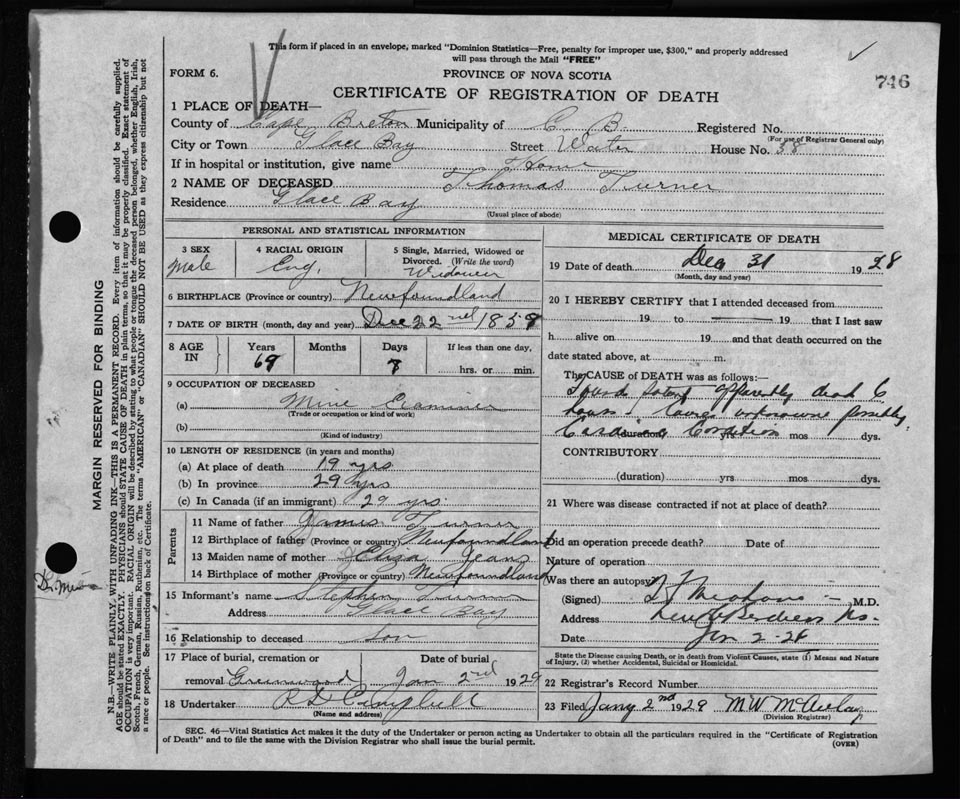 This form if placed in an envelope, marked "Dominion Statistics—Free, penalty for improper use, $300," and properly addressed
will pass through the Mail "FREE"
746
FORM 6.
PROVINCE OF NOVA SCOTIA
CERTIFICATE OF REGISTRATION OF DEATH
1 PLACE OF DEATH—
County of Cape Breton Municipality of C. B. Registered No.
(For use of Registrar General only)
City or Town Glace Bay Street Water House No. 38
If in hospital or institution, give name Home
2 NAME OF DECEASED Thomas Turner
Residence Glace Bay
(Usual place of abode)
PERSONAL AND STATISTICAL INFORMATION
3 SEX
Male
4 RACIAL ORIGIN
Eng.
5 Single, Married, Widowed or
Divorced. (Write the word)
Widower
6 BIRTHPLACE (Province or country) Newfoundland
7 DATE OF BIRTH (month, day and year) Dec 22nd 1859
8 AGE IN
Years
69
Months
Days
If less than one day,
hrs. or min.
9 OCCUPATION OF DECEASED
(a) Mine Examiner
(Trade or occupation or kind of work)
(b)
(Kind of industry)
10 LENGTH OF RESIDENCE (in years and months)
(a) At place of death 19 yrs
(b) In province 29 yrs
(c) In Canada (if an immigrant) 29 yrs.
Parents
11 Name of father James Turner
12 Birthplace of father (Province or country) Newfoundland
13 Maiden name of mother Eliza Jeans
14 Birthplace of mother (Province or country) Newfoundland
15 Informant's name Stephen Turner
Address Glace Bay
16 Relationship to deceased Son
17 Place of burial, cremation or
removal Greenwood
Date of burial
Jan 2nd 1929
18 Undertaker Campbell
(Name and address)
MEDICAL CERTIFICATE OF DEATH
19 Date of death Dec 31 1928
(Month, day and year)
20 I HEREBY CERTIFY that I attended deceased from
19 to 19 that I last saw
h alive on 19 and that death occurred on the
date stated above, at m.
The CAUSE OF DEATH was as follows:—
Found apparently dead 6
hours. unknown possibly
Cardiac Condition
(duration) yrs mos dys.
CONTRIBUTORY
(duration) yrs mos dys.
21 Where was disease contracted if not at place of death?
Did an operation precede death? Date of
Nature of operation
Was there an autopsy?
(Signed) M.D.
Address New Aberdeen N.S.
Date Jan 2-28
State the Disease causing Death, or in death from Violent Causes, state (1) Means and Nature
of Injury, (2) whether Accidental, Suicidal or Homicidal.
22 Registrar's Record Number
23 Filed Jany 2nd 1929 M W McAulay
(Division Registrar)
SEC. 46—Vital Statistics Act makes it the duty of the Undertaker or person acting as Undertaker to obtain all the particulars required in the "Certificate of Registration
of Death" and to file the same with the Division Registrar who shall issue the burial permit.
(OVER)
MARGIN RESERVED FOR BINDING
N.B.—WRITE PLAINLY, WITH UNFADING INK—THIS IS A PERMANENT RECORD. Every item of information should be carefully supplied.
AGE should be stated EXACTLY. PHYSICIANS should STATE CAUSE OF DEATH in plain terms, so that it may be properly classified. Exact statement of
OCCUPATION is very important. RACIAL ORIGIN will be described by stating to what people or tongue the deceased person belonged, whether English, Irish,
Scotch, French, German, Russian, Ruthenian, etc. The terms "AMERICAN" or "CANADIAN" SHOULD NOT BE USED as they express citizenship but not
a race or people. See instructions on back of Certificate.